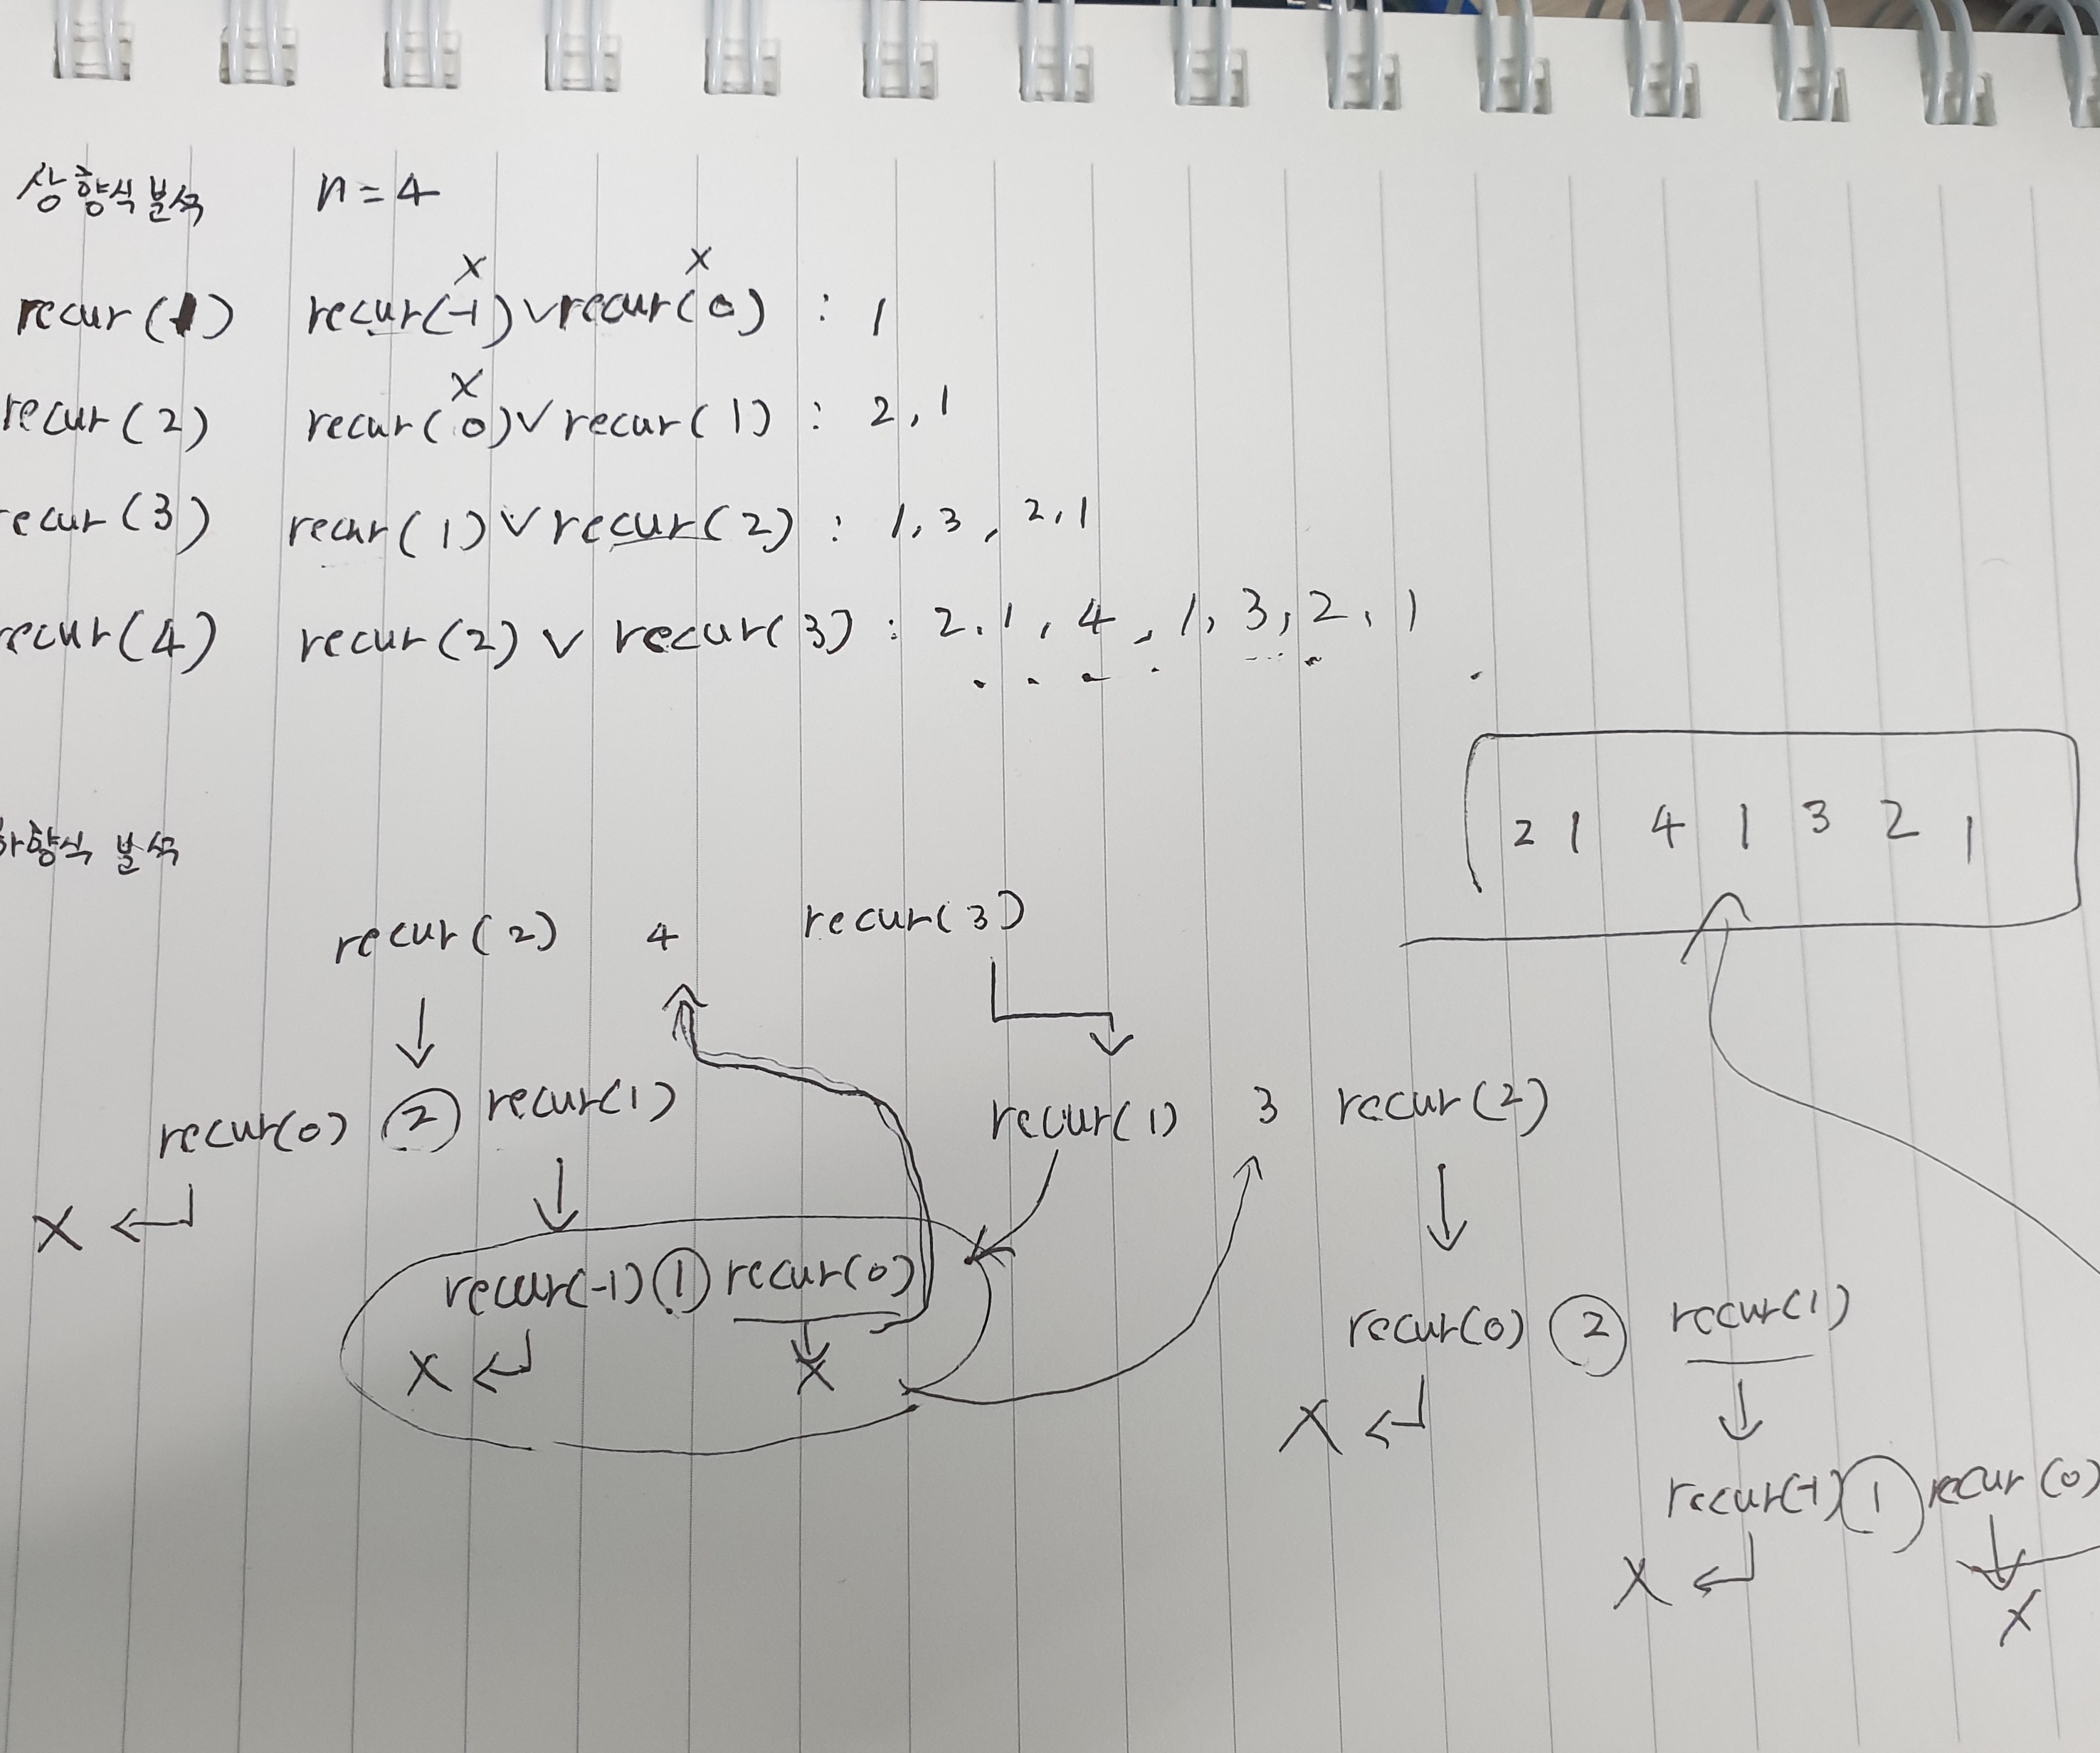 상향식 분석 n=4
x x
recur(1) recur(-1)∨recur(0) : 1
x
recur(2) recur(0)∨recur(1) : 2,1
recur(3) recur(1)∨recur(2) : 1,3,2,1
recur(4) recur(2)∨recur(3) : 2,1,4,1,3,2,1
2 1 4 1 3 2 1
하향식 분석
recur(2) 4 recur(3)
recur(0) ② recur(1) recur(1) 3 recur(2)
X
recur(-1) ① recur(0) recur(0) ② recur(1)
X X X
recur(-1) ① recur(0)
X X